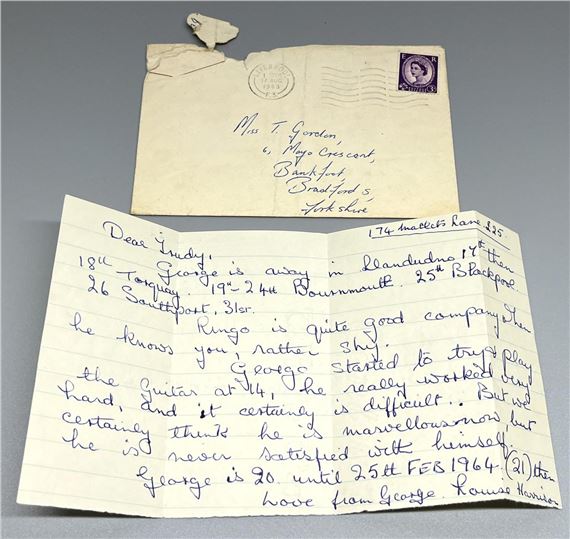 LIVERPOOL
AUG
1963
E R
Miss T. Gordon,
6, Mayo Crescent,
Bankfoot,
Bradford 5,
Yorkshire
174 Mackets Lane L25.
Dear Trudy,
George is away in Llandudno 17th then
18th Torquay. 19th - 24th Bournmouth. 25th Blackpool
26 Southport, 31st.
Ringo is quite good company when
he knows you, rather shy.
George started to try & play
the guitar at 14, he really worked very
hard, and it certainly is difficult.. But we
certainly think he is marvellous now, but
he is never satisfied with himself.
George is 20. until 25th FEB 1964. (21) then
Love from George. Louise Harrison